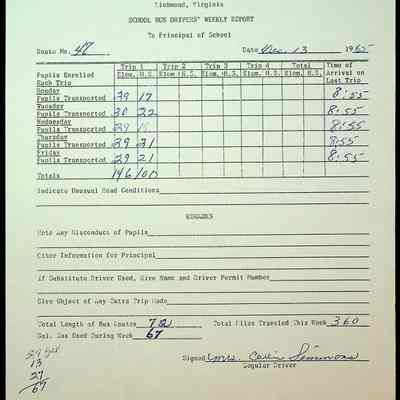 Richmond, Virginia
SCHOOL BUS DRIVERS' WEEKLY REPORT
To Principal of School
Route No. 48 Date Dec. 13 1965
Trip 1 Trip 2 Trip 3 Trip 4 Total Time of
Pupils Enrolled Elem. H.S. Elem. H.S. Elem. H.S. Elem. H.S. Elem. H.S. Arrival on
Each Trip Last Trip
Monday
Pupils Transported 29 17 8:55
Tuesday
Pupils Transported 30 22 8:55
Wednesday
Pupils Transported 29 8:55
Thursday
Pupils Transported 29 21 8:55
Friday
Pupils Transported 29 21 8:55
Totals 146 100
Indicate Unusual Road Conditions
REMARKS
Note Any Misconduct of Pupils
Other Information for Principal
If Substitute Driver Used, Give Name and Driver Permit Number
Give Object of Any Extra Trip Made
Total Length of Bus Routes 72 Total Miles Traveled This Week 360
Gal. Gas Used During Week 67
Signed Mrs. Simmons
Regular Driver
13
27
67